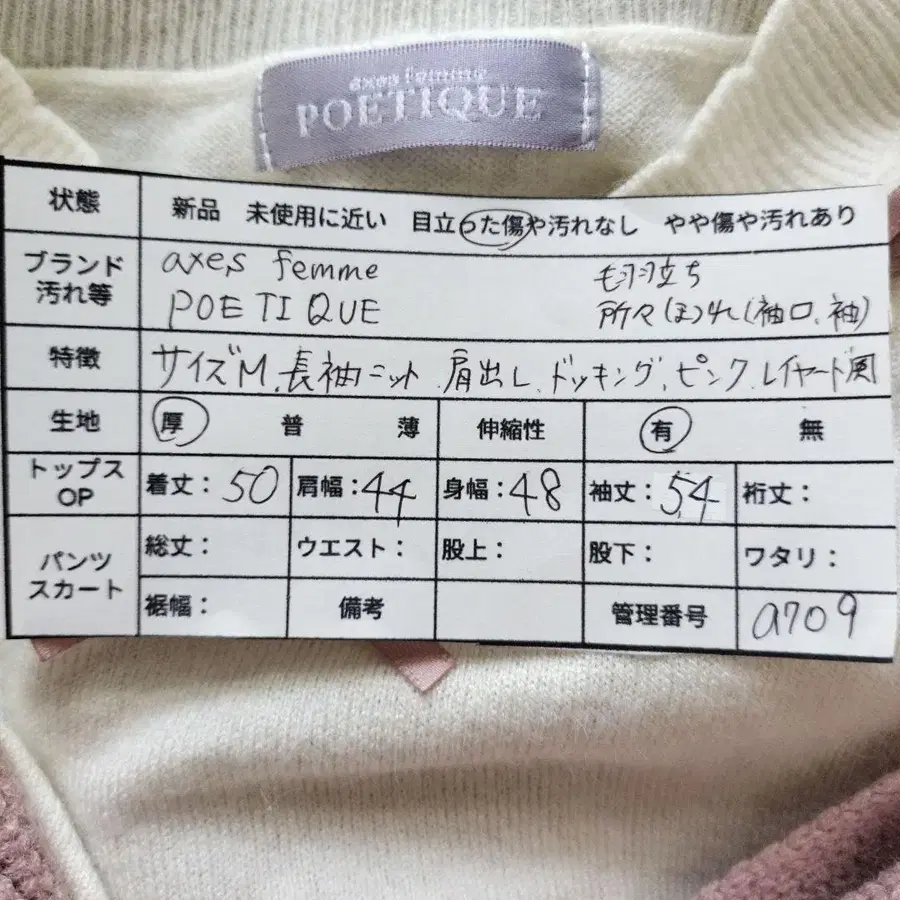 axes femme
POETIQUE
状態 新品 未使用に近い 目立った傷や汚れなし やや傷や汚れあり
ブランド axes femme 毛羽立ち
汚れ等 POETIQUE 所々ほつれ(袖口、袖)
特徴 サイズM、長袖ニット、肩出し、ドッキング、ピンク、レイヤード風
生地 厚 普 薄 伸縮性 有 無
トップス
OP 着丈:50 肩幅:44 身幅:48 袖丈:54 裄丈:
パンツ
スカート 総丈: ウエスト: 股上: 股下: ワタリ:
裾幅: 備考 管理番号 a709